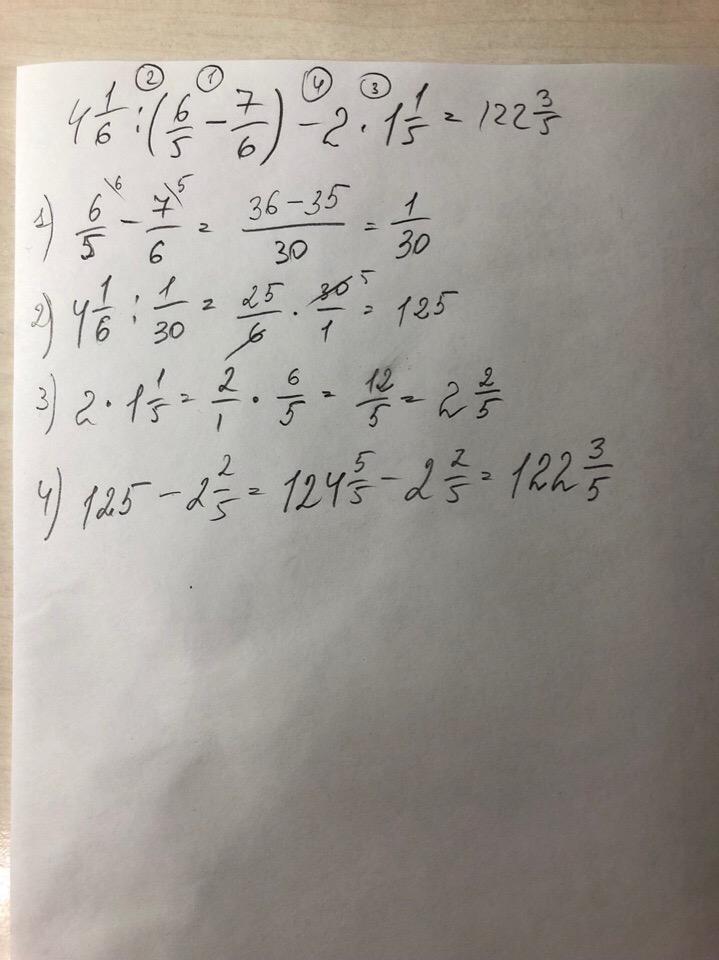 ② ① ④ ③
4 1/6 : (6/5 − 7/6) − 2 · 1 1/5 = 122 3/5
1) 6/5 \6 − 7/6 \5 = (36 − 35)/30 = 1/30
2) 4 1/6 : 1/30 = 25/6 · 30/1 5 = 125
3) 2 · 1 1/5 = 2/1 · 6/5 = 12/5 = 2 2/5
4) 125 − 2 2/5 = 124 5/5 − 2 2/5 = 122 3/5